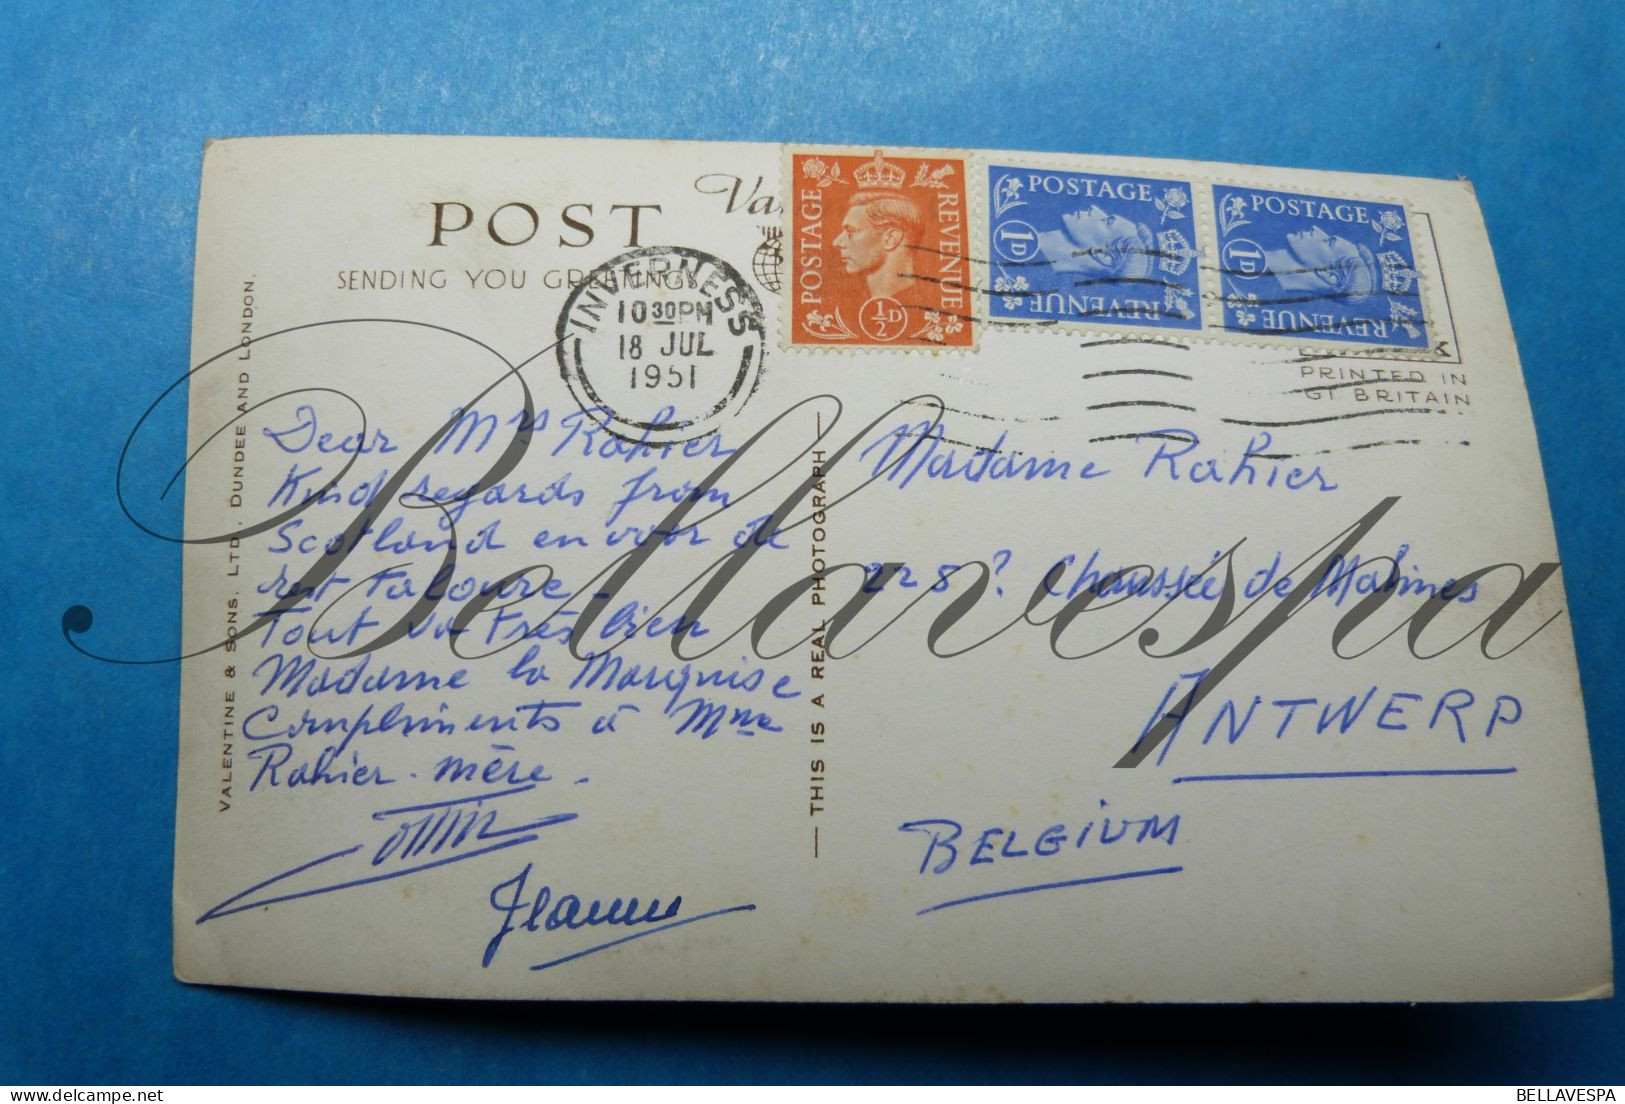 POST
SENDING YOU GREETINGS
INVERNESS
10 30 PM
18 JUL
1951
POSTAGE REVENUE
½D
POSTAGE
1D
REVENUE
POSTAGE
1D
REVENUE
PRINTED IN
GT. BRITAIN
VALENTINE & SONS, LTD., DUNDEE AND LONDON.
THIS IS A REAL PHOTOGRAPH
Dear Mrs Rahier
Kind regards from
Scotland en voor de
rest
Tout va très bien
Madame la Marquise
Compliments à Mme
Rahier-mère.
Madame Rahier
225? Chaussée de Malines
ANTWERP
BELGIUM
Bellavespa
BELLAVESPA